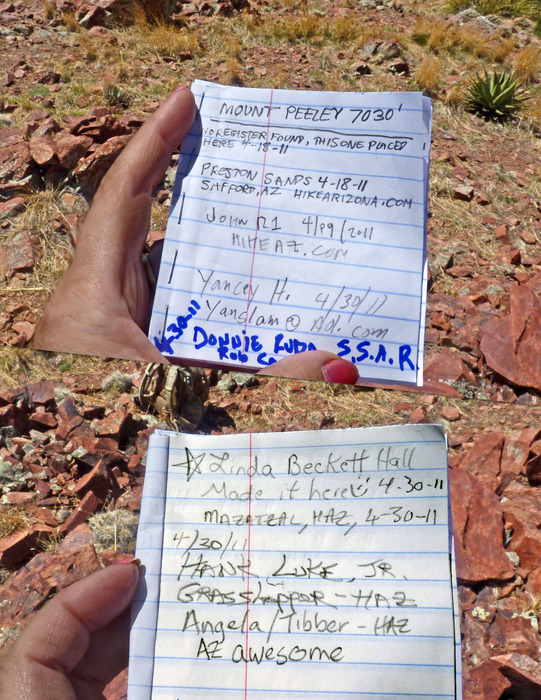 MOUNT PEELEY 7030'
NO REGISTER FOUND, THIS ONE PLACED
HERE 4-18-11
PRESTON SANDS 4-18-11
SAFFORD, AZ HIKEARIZONA.COM
JOHN R1 4/29/2011
HIKEAZ.COM
Yancey H. 4/30/11
Yanglam@Aol.com
4-30-11 DONNIE S.S.A.R.
ROB
☆ Linda Beckett Hall
Made it here 4-30-11
MAZATZAL, HAZ, 4-30-11
4/30/11
HANK LUKE, JR.
GRASSHOPPER - HAZ
Angela/Tibber - HAZ
AZ awesome